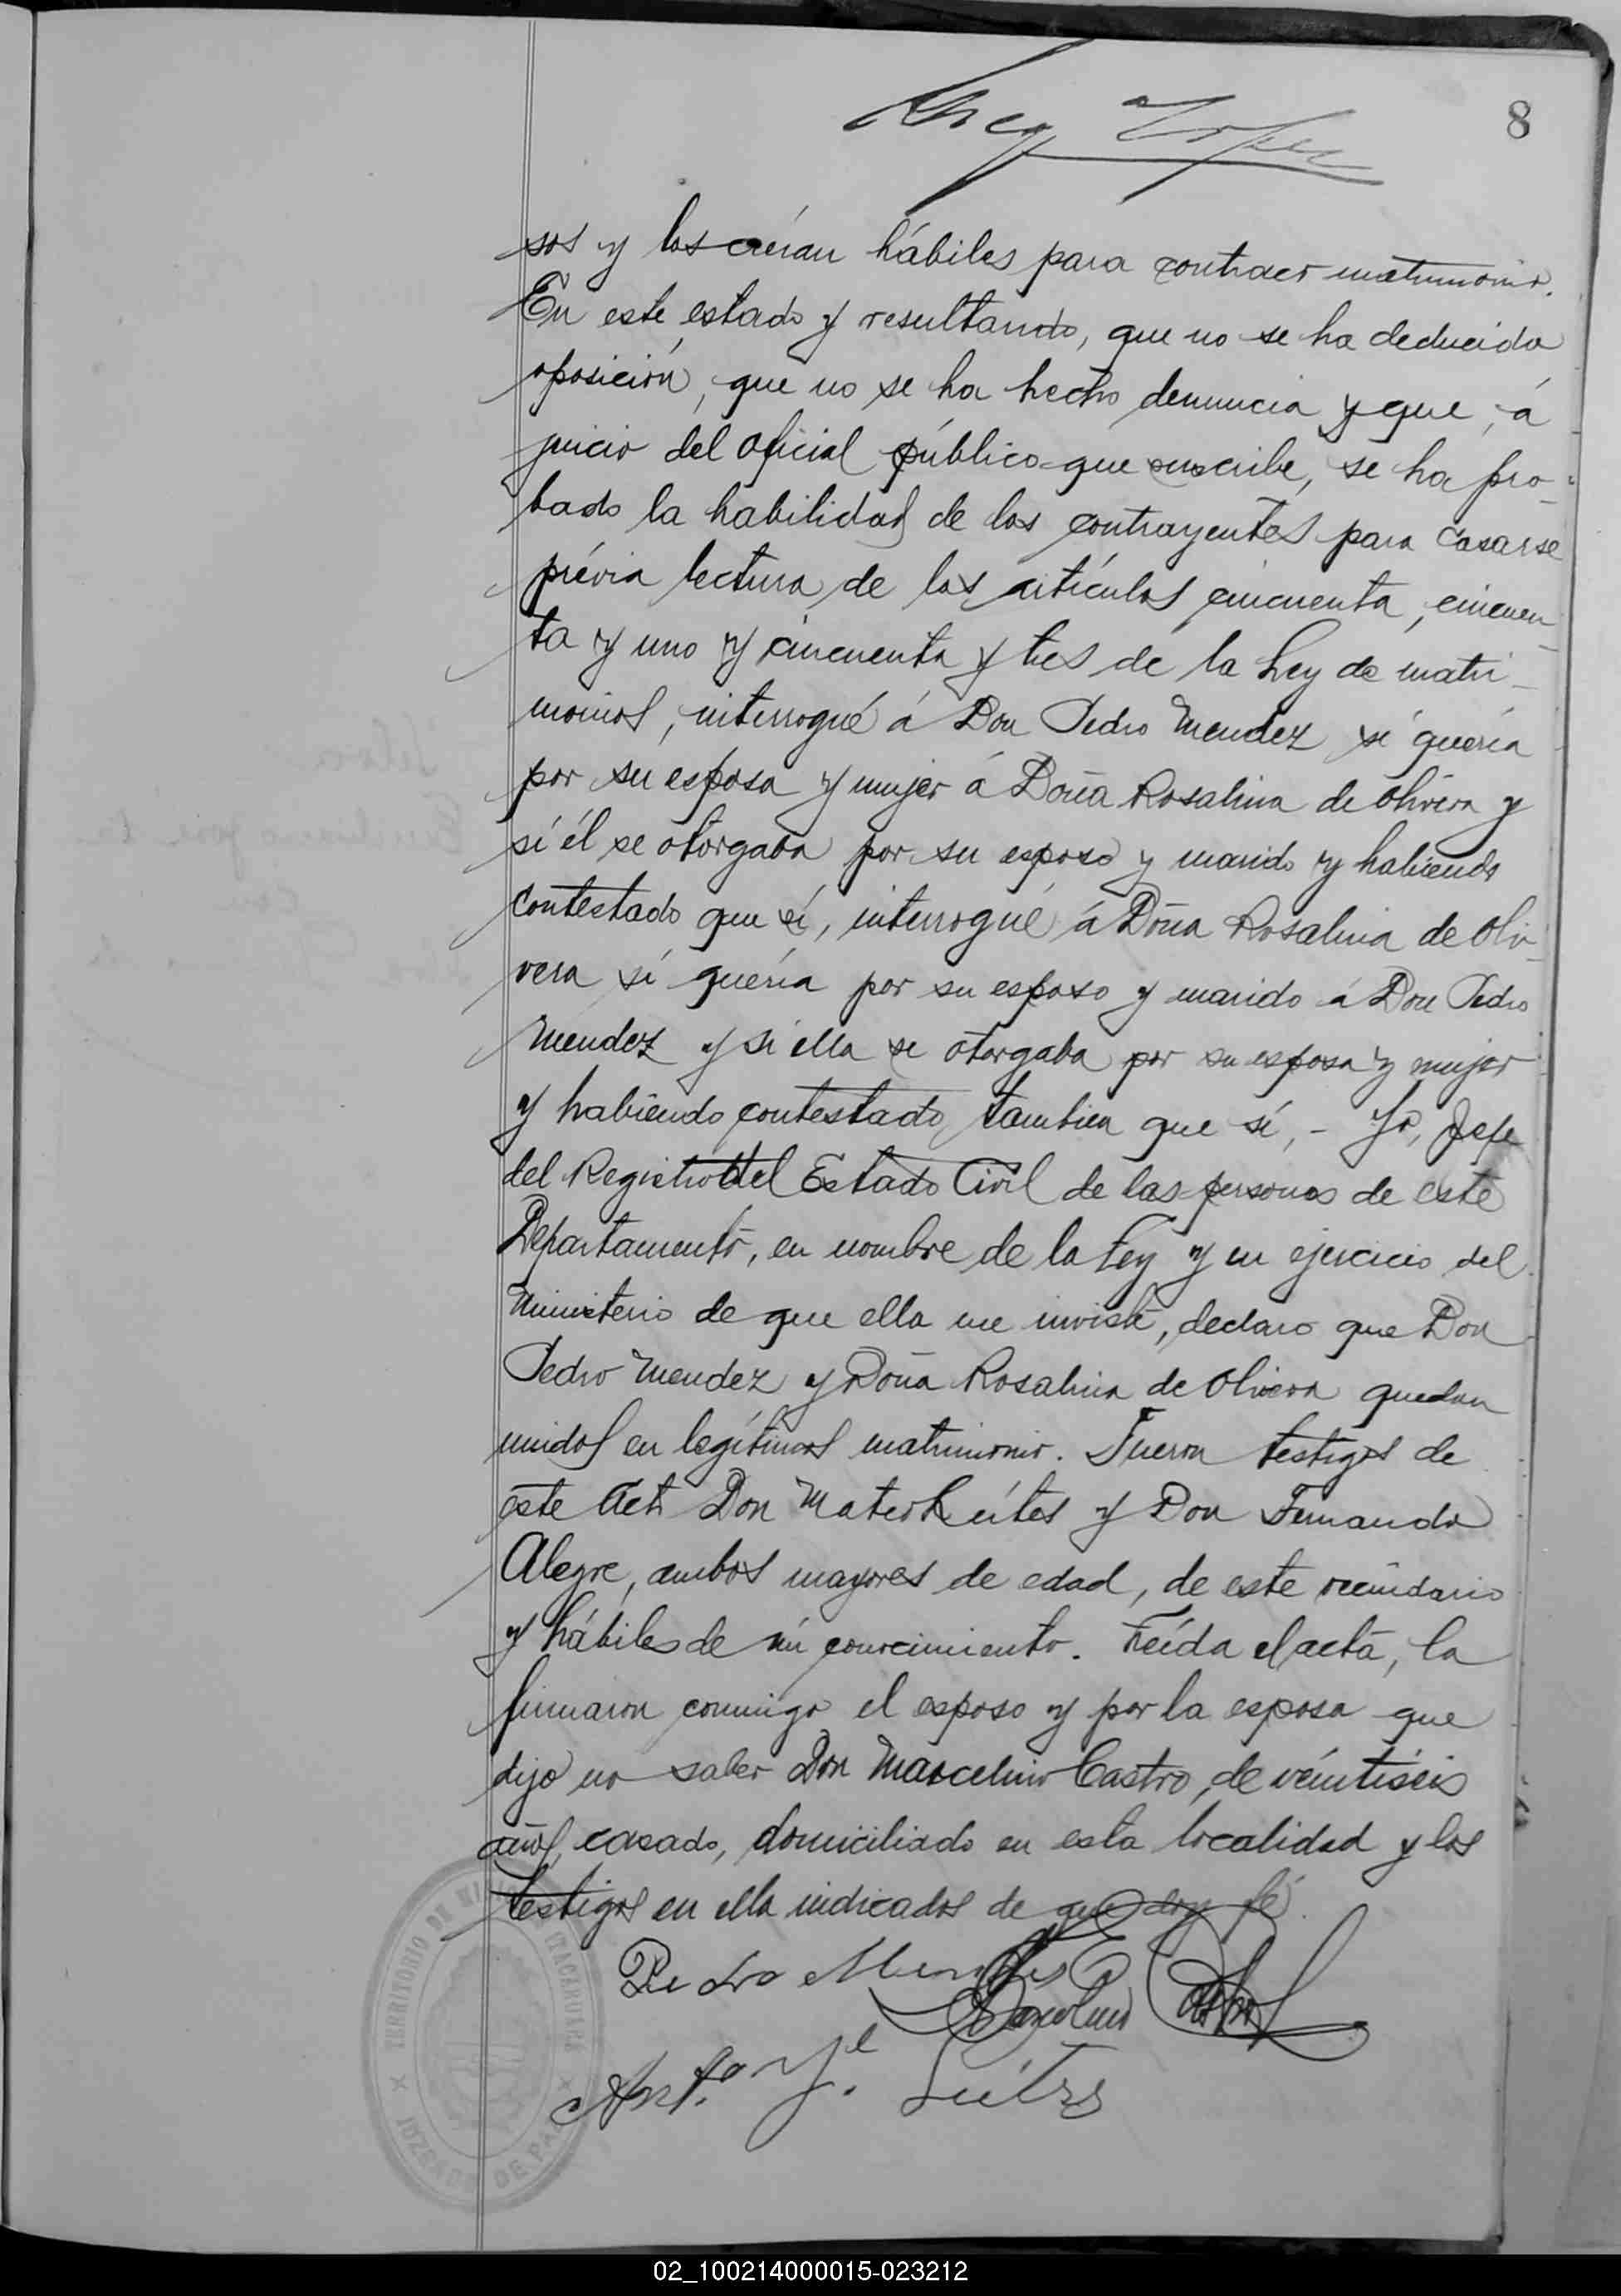 8
sos y los creían hábiles para contraer matrimonio.
En este estado y resultando, que no se ha deducido
oposición, que no se ha hecho denuncia y que, á
juicio del oficial público que suscribe, se ha pro-
bado la habilidad de los contrayentes para casarse
prévia lectura de los artículos cincuenta, cincuen-
ta y uno y cincuenta y tres de la Ley de matri-
monios, interrogué á Don Pedro Mendez sí quería
por su esposa y mujer á Doña Rosalina de Olivera y
sí él se otorgaba por su esposo y marido y habiendo
contestado que sí, interrogué á Doña Rosalina de Oli-
vera sí quería por su esposo y marido á Don Pedro
Mendez y sí ella se otorgaba por su esposa y mujer
y habiendo contestado tambien que sí, - Yo, Jefe
del Registro del Estado Civil de las personas de este
Departamento, en nombre de la Ley y en ejercicio del
Ministerio de que ella me inviste, declaro que Don
Pedro Mendez y Doña Rosalina de Olivera quedan
unidos en legítimos matrimonio. Fueron testigos de
este Acto Don y Don Fernando
Alegre, ambos mayores de edad, de este vecindario
y hábiles de mi conocimiento. Leída el acta, la
firmaron conmigo el esposo y por la esposa que
dijo no saber Don Marcelino Castro, de veintiséis
años, casado, domiciliado en esta localidad y los
testigos en ella indicados de que doy fé.
Pedro Mendes
Marcelino Castro
Ant.º J.
TERRITORIO DE MISIONES
ITACARUARE
JUZGADO DE PAZ
02_100214000015-023212